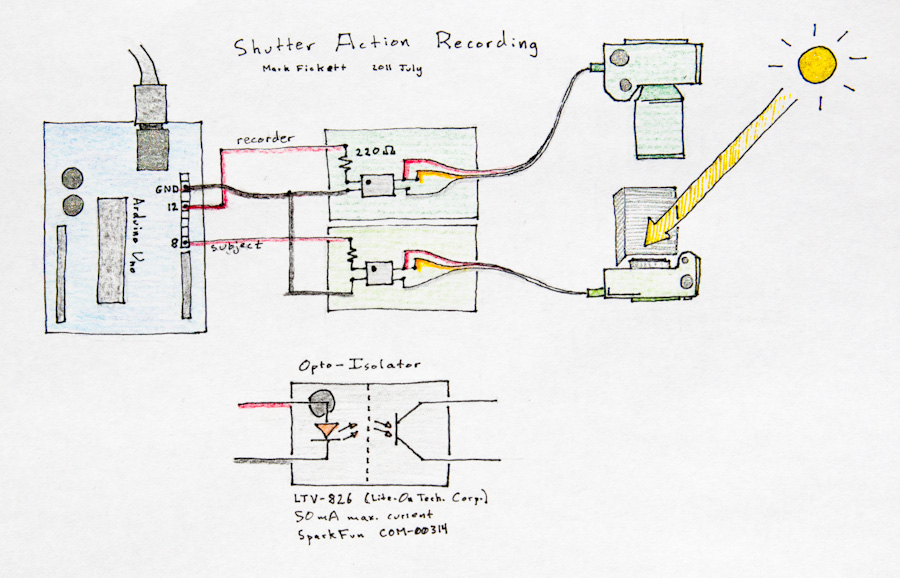 Shutter Action Recording
Mark Fickett 2011 July
recorder
220Ω
GND
12
Arduino Uno
8
subject
Opto-Isolator
LTV-826 (Lite-On Tech. Corp.)
50mA max. current
SparkFun COM-00314